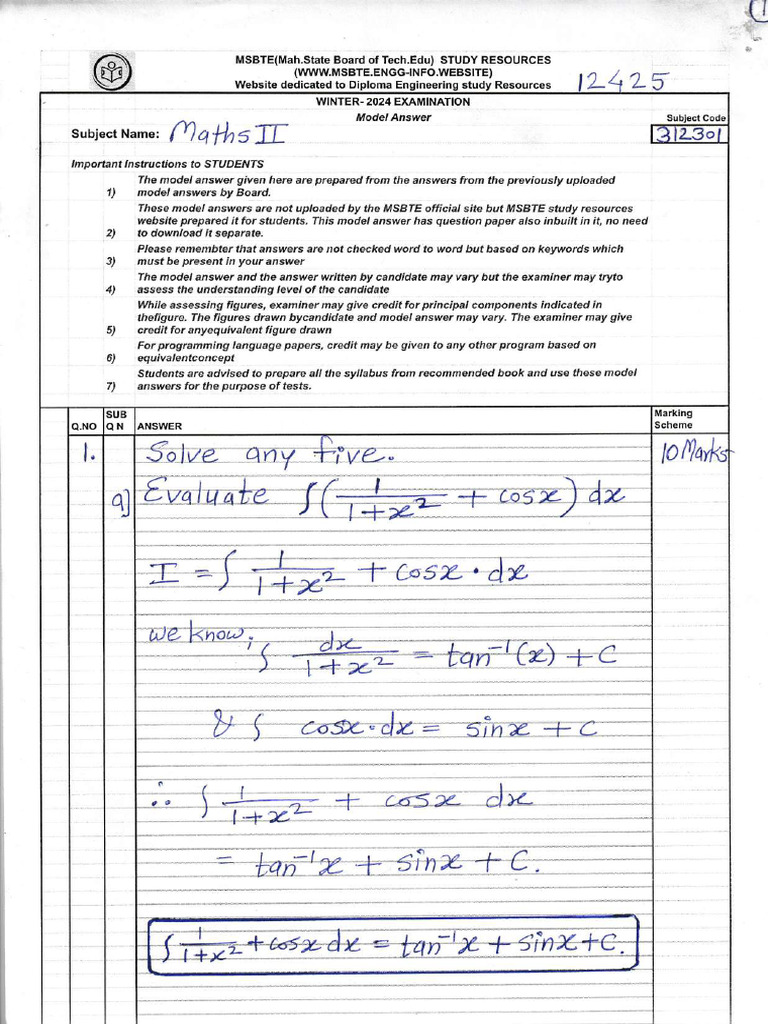 1
MSBTE(Mah.State Board of Tech.Edu) STUDY RESOURCES
(WWW.MSBTE.ENGG-INFO.WEBSITE)
Website dedicated to Diploma Engineering study Resources
12425
WINTER- 2024 EXAMINATION
Model Answer
Subject Code
Subject Name: Maths II
312301
Important Instructions to STUDENTS
1) The model answer given here are prepared from the answers from the previously uploaded
model answers by Board.
2) These model answers are not uploaded by the MSBTE official site but MSBTE study resources
website prepared it for students. This model answer has question paper also inbuilt in it, no need
to download it separate.
3) Please remembter that answers are not checked word to word but based on keywords which
must be present in your answer
4) The model answer and the answer written by candidate may vary but the examiner may tryto
assess the understanding level of the candidate
5) While assessing figures, examiner may give credit for principal components indicated in
thefigure. The figures drawn bycandidate and model answer may vary. The examiner may give
credit for anyequivalent figure drawn
6) For programming language papers, credit may be given to any other program based on
equivalentconcept
7) Students are advised to prepare all the syllabus from recommended book and use these model
answers for the purpose of tests.
Q.NO SUB Q N ANSWER Marking Scheme
1. Solve any five. 10 Marks
a] Evaluate ∫(1/(1+x²) + cosx) dx
I = ∫ 1/(1+x²) + cosx · dx
we know; ∫ dx/(1+x²) = tan⁻¹(x) + C
& ∫ cosx·dx = sinx + C
∴ ∫ 1/(1+x²) + cosx dx
= tan⁻¹x + sinx + C.
∫ 1/(1+x²) + cosx dx = tan⁻¹x + sinx + C.